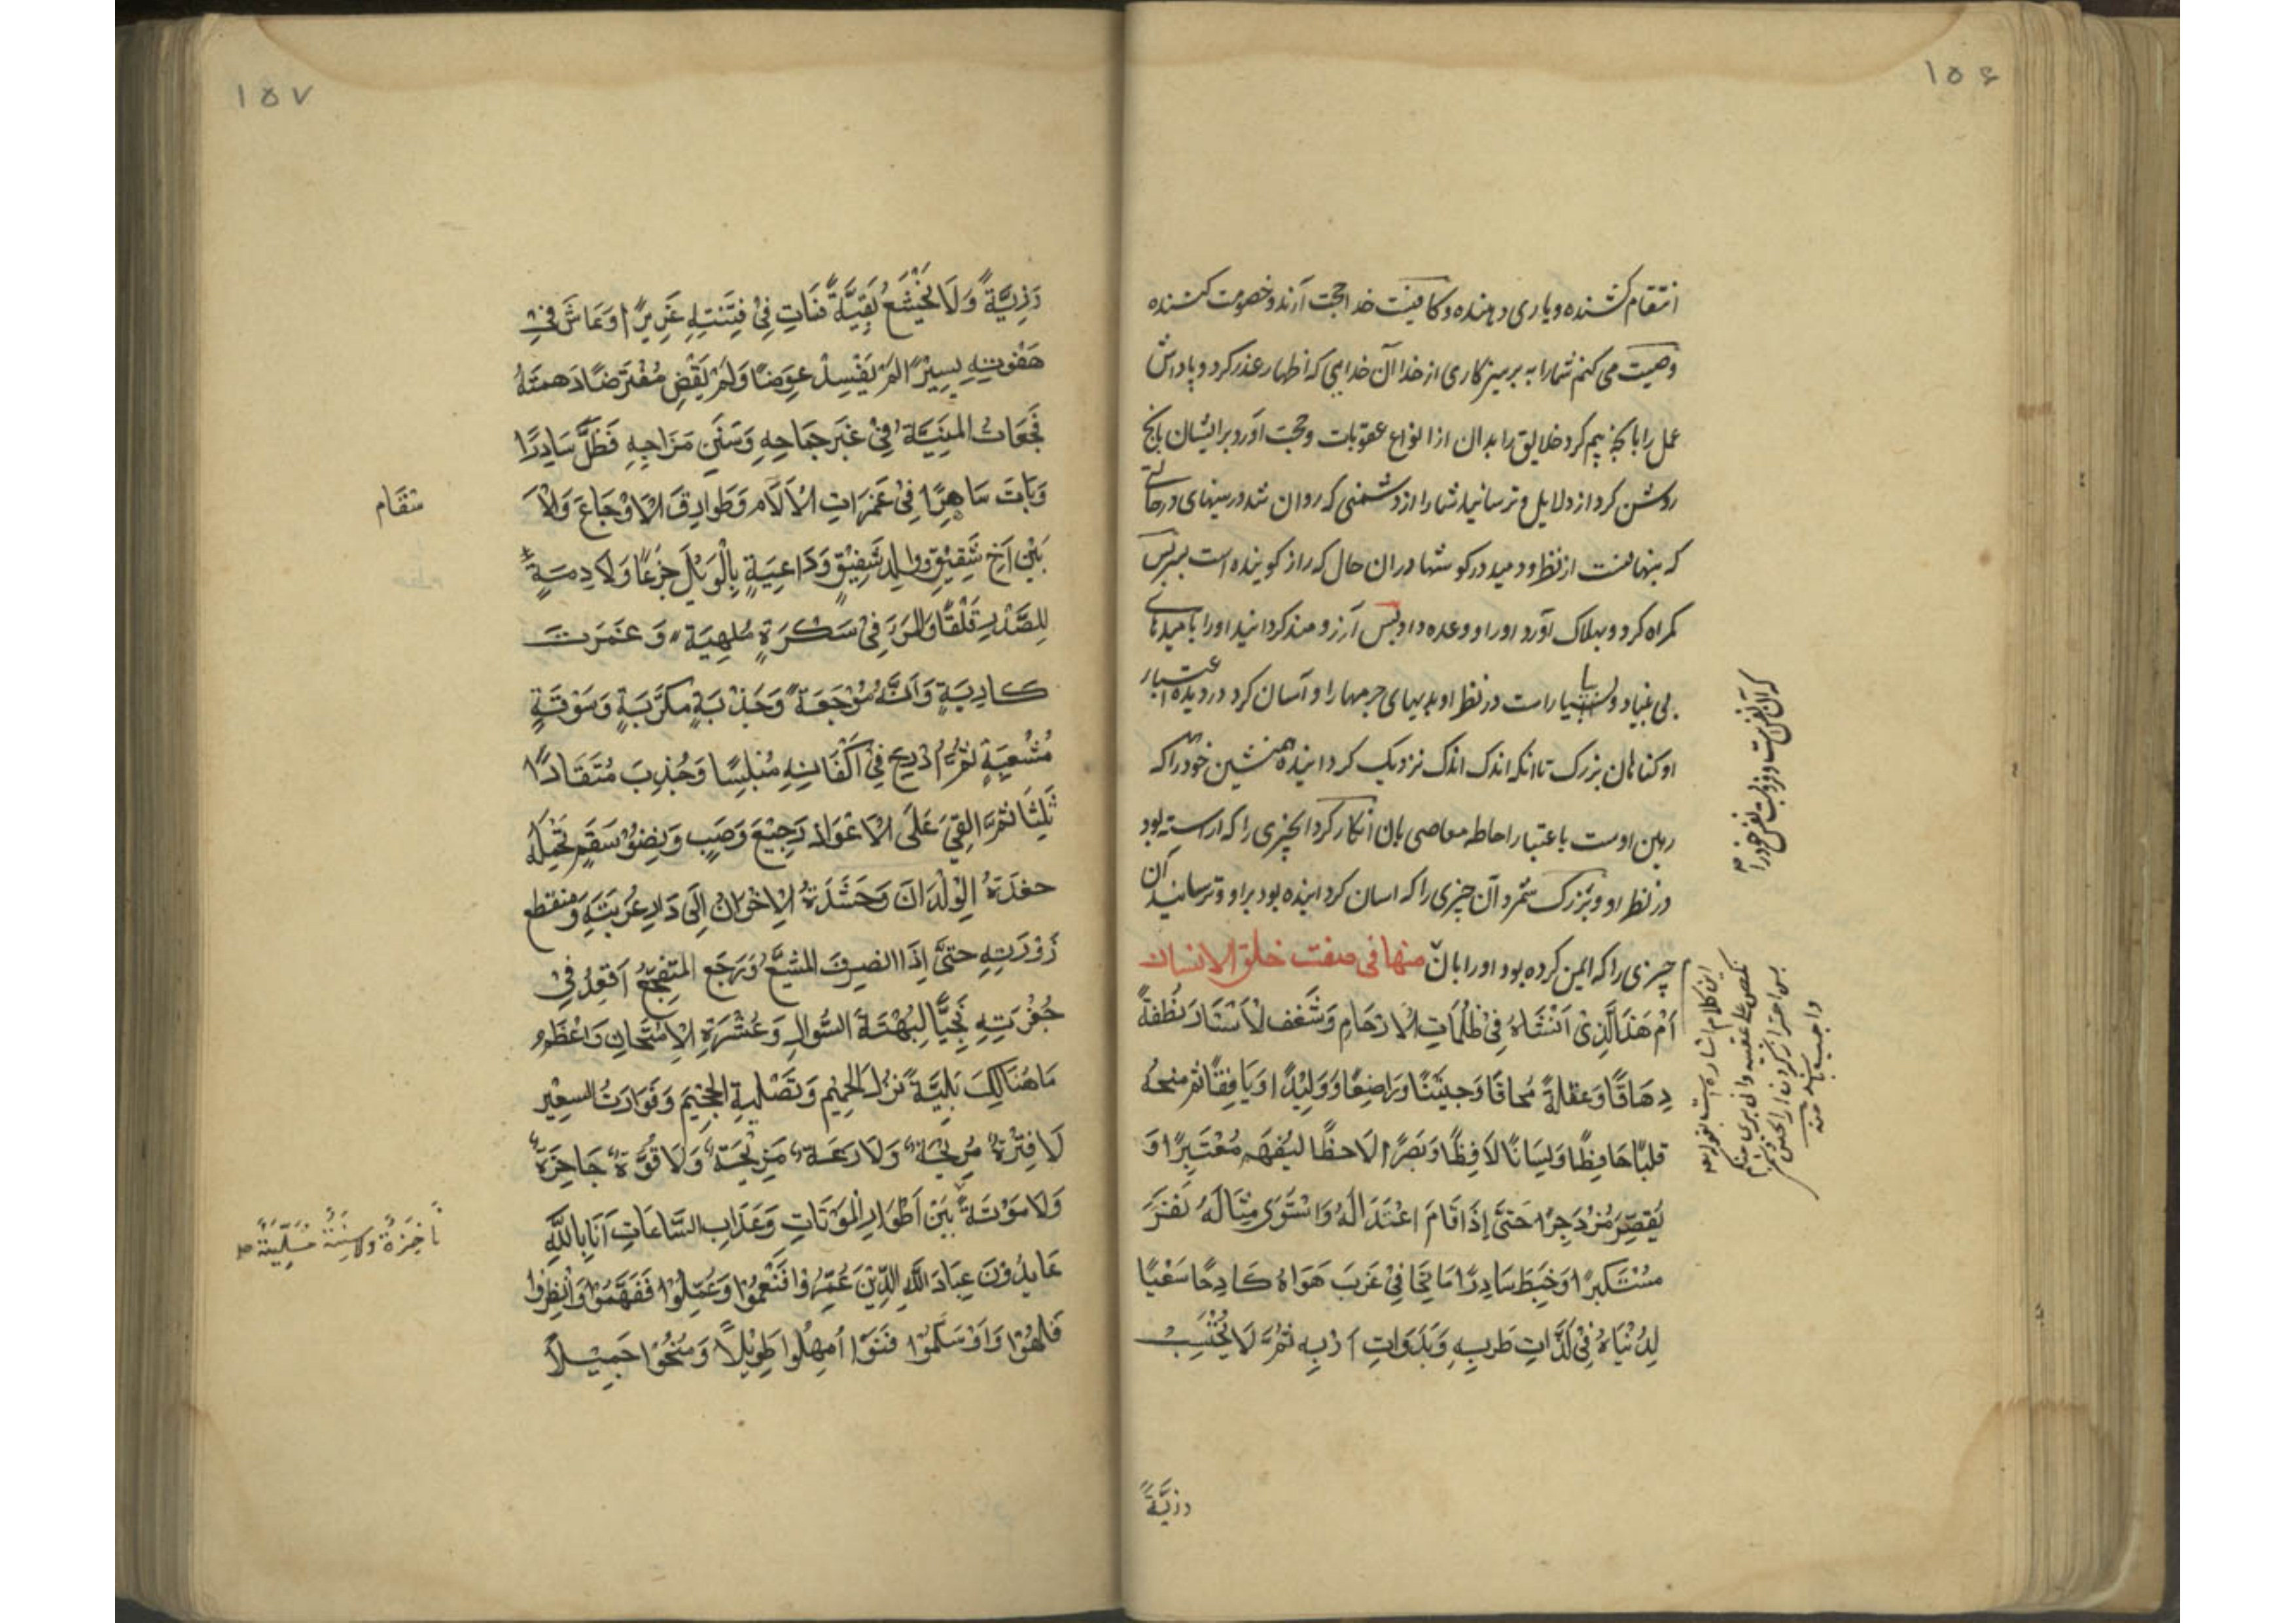 ۱۵۶
انتقام کشنده و یاری دهنده و کافیست خدا حجت آرنده و خصومت کننده
وصیت می کنم شما را به پرهیزکاری از خدا آن خدایی که اظهار عذر کرد و پاداش
عمل را بآنچه بیم کرد خلایق را بدان از انواع عقوبات و حجت آورد برایشان بانچ
روشن کرد از دلایل و ترسانید شما را از دشمنی که روان شد در سینهای در حالتی
که پنهانست از نظر و دمید در کوشها در ان حال که راز کوینده است بس
کمراه کرد و بهلاک آورد او را و وعده داد بس آرزومند کردانید او را بامیدهای
بی بنیاد و بیاراست در نظر او بدیهای جرمها را و آسان کرد در دیده اعتبار
او کناهان بزرک تا انکه اندک اندک نزدیک کردانیده همنشین خود را که
رهین اوست باعتبار احاطه معاصی بان انکار کرد انچیزی را که اراسته بود
در نظر او و بزرک شمرد آن چیزی را که اسان کردانیده بود بر او و ترسانید ان
چیزی را که ایمن کرده بود او را بان منها فی صفت خلق الانسان
اَمْ هَذَا الَّذِیْ اَنْشَاهُ فِیْ ظُلُمَاتِ الْاَرْحَامِ وَشَغَفِ الْاَسْتَارِ نُطْفَةً
دِهَاقًا وَعَقَلةً مُحَاقًا وَجَنِیْنًا وَرَاضِعًا وَوَلِیْدًا وَیَافِعًا ثم منحهُ
قَلْبًا حَافِظًا وَلِسَانًا لَافِظًا وَبَصَرًا لَاحِظًا لِیَفْهَمَ مُعْتَبِرًا وَ
یُقَصِّرَ مُزْدَجِرًا حَتَّی اِذَا قَامَ اعْتِدَالُهُ وَاسْتَوَی مِثَالُهُ نَفَرَ
مُسْتَکْبِرًا وَخَبَطَ سَادِرًا مَاتِحًا فِیْ غَرْبِ هَوَاهُ کَادِحًا سَعْیًا
لِدُنْیَاهُ فِیْ لَذَّاتِ طَرَبِهِ وَبَدَوَاتِ اَرَبِهِ ثُمَّ لَا یَحْتَسِبُ
که آن نفس است
این کلام اشاره است بقوله تعه
نکص علی عقبیه و انی بری منکم
واجب باشد منه
رزیّةً
۱۵۷
رَزِیَّةً وَلَا یَخْشَعُ بَقِیَّةً فَمَاتِ فِیْ فِتْنَتِهِ غَرِیْرًا وَعَاشَ فِیْ
هَفْوَتِهِ یَسِیْرًا لَمْ یَفْسِلْ عِوَضًا وَلَمْ یَقْضِ مُفْتَرَضًا دَهِمَتْهُ
فَجَعَاتُ الْمَنِیَّةِ فِیْ غُبَّرِ جِمَاحِهِ وَسَنَنِ مَزَاحِهِ فَظَلَّ سَادِرًا
وَبَاتَ سَاهِرًا فِیْ غَمَرَاتِ الْاَلَامِ وَطَوَارِقِ الْاَوْجَاعِ وَالْاَ
سقَام
بَیْنَ اَخٍ شَقِیْقٍ وَوَالِدٍ شَفِیْقٍ وَدَاعِیَةٍ بِالْوَیْلِ جَزَعًا وَلَادِمَةٍ
لِلصَّدْرِ قَلَقًا وَالمرَ فِیْ سَکْرَةٍ مُلْهِیَةٍ وَغَمَرتٍ
کَارِبَةٍ وَاَنَّةٍ مُوْجِعَةٍ وَجَذْبَةٍ مکْرَبَةٍ وَسَوْقَةٍ
مُتْعِبَةٍ ثُمَّ اُدْرِجَ فِیْ اَکْفَانِهِ مُبْلِسًا وَجُذِبَ مُنْقَادًا
سَلِسًا ثُمَّ اُلْقِیَ عَلَی الْاَعْوَادِ رَجِیْعَ وَصَبٍ وَنِضْوَ سَقَمٍ تَحْمِلُهُ
حَفَدَةُ الْوِلْدَانَ وَحَشَدَةُ الْاِخْوَانِ اِلَی دَارِ غُرْبَتِهِ وَمُنْقَطع
زَوْرَتِهِ حَتَّی اِذَا انْصَرَفَ المُشَیِّعُ وَرَجَعَ المُتَفَجِّعُ اُقْعِدَ فِیْ
حُفْرَتِهِ نَجِیًّا لِبَهْتَةِ السُّوالِ وَعَثْرَةِ الْاِمْتِحَانِ وَاَعْظَمُ
مَا هُنَالِکَ بَلِیَّةً نُزُلُ الْحَمِیْمِ وَتَصْلِیَةِ الْجَحِیْمِ وَفَوْرَاتُ السعِیْرِ
لَا فِتْرَةٌ مُرِیْحَةٌ وَلَا دَعَةٌ مُزِیْحَةٌ وَلَا قُوَّةٌ حَاجِزَةٌ
وَلَا مَوْتَةٌ بَیْنَ اَطْوَارِ الْمَوْتَاتِ وَعَذَابِ السَّاعَاتِ اَنَا بِاللَّهِ
نَاجِزَةٌ وَلَا سِنَةٌ مُسَلِّیَةٌ صح
عَایِذُوْنَ عِبَادَ اللَّهِ الَّذِیْنَ عُمِّرُوا فَنَعِمُوْا وَعُلِّمُوْا فَفَهِمُوْا وَاُنْظِرُوا
فَلَهَوْا وَسُلِّمُوْا فَنَسُوْا اُمْهِلُوا طَوِیْلًا وَمُنِحُوْا جَمِیْلًا